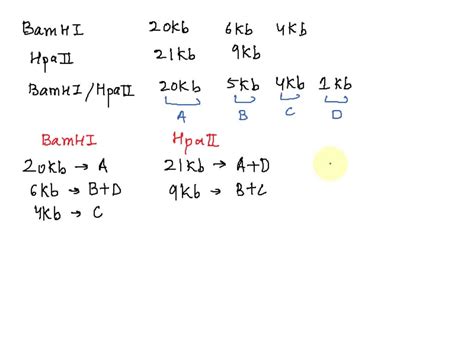 BamHI 20kb 6kb 4kb
HpaII 21kb 9kb
BamHI/HpaII 20kb 5kb 4kb 1kb
A B C D
BamHI HpaII
20kb → A 21kb → A+D
6kb → B+D 9kb → B+C
4kb → C